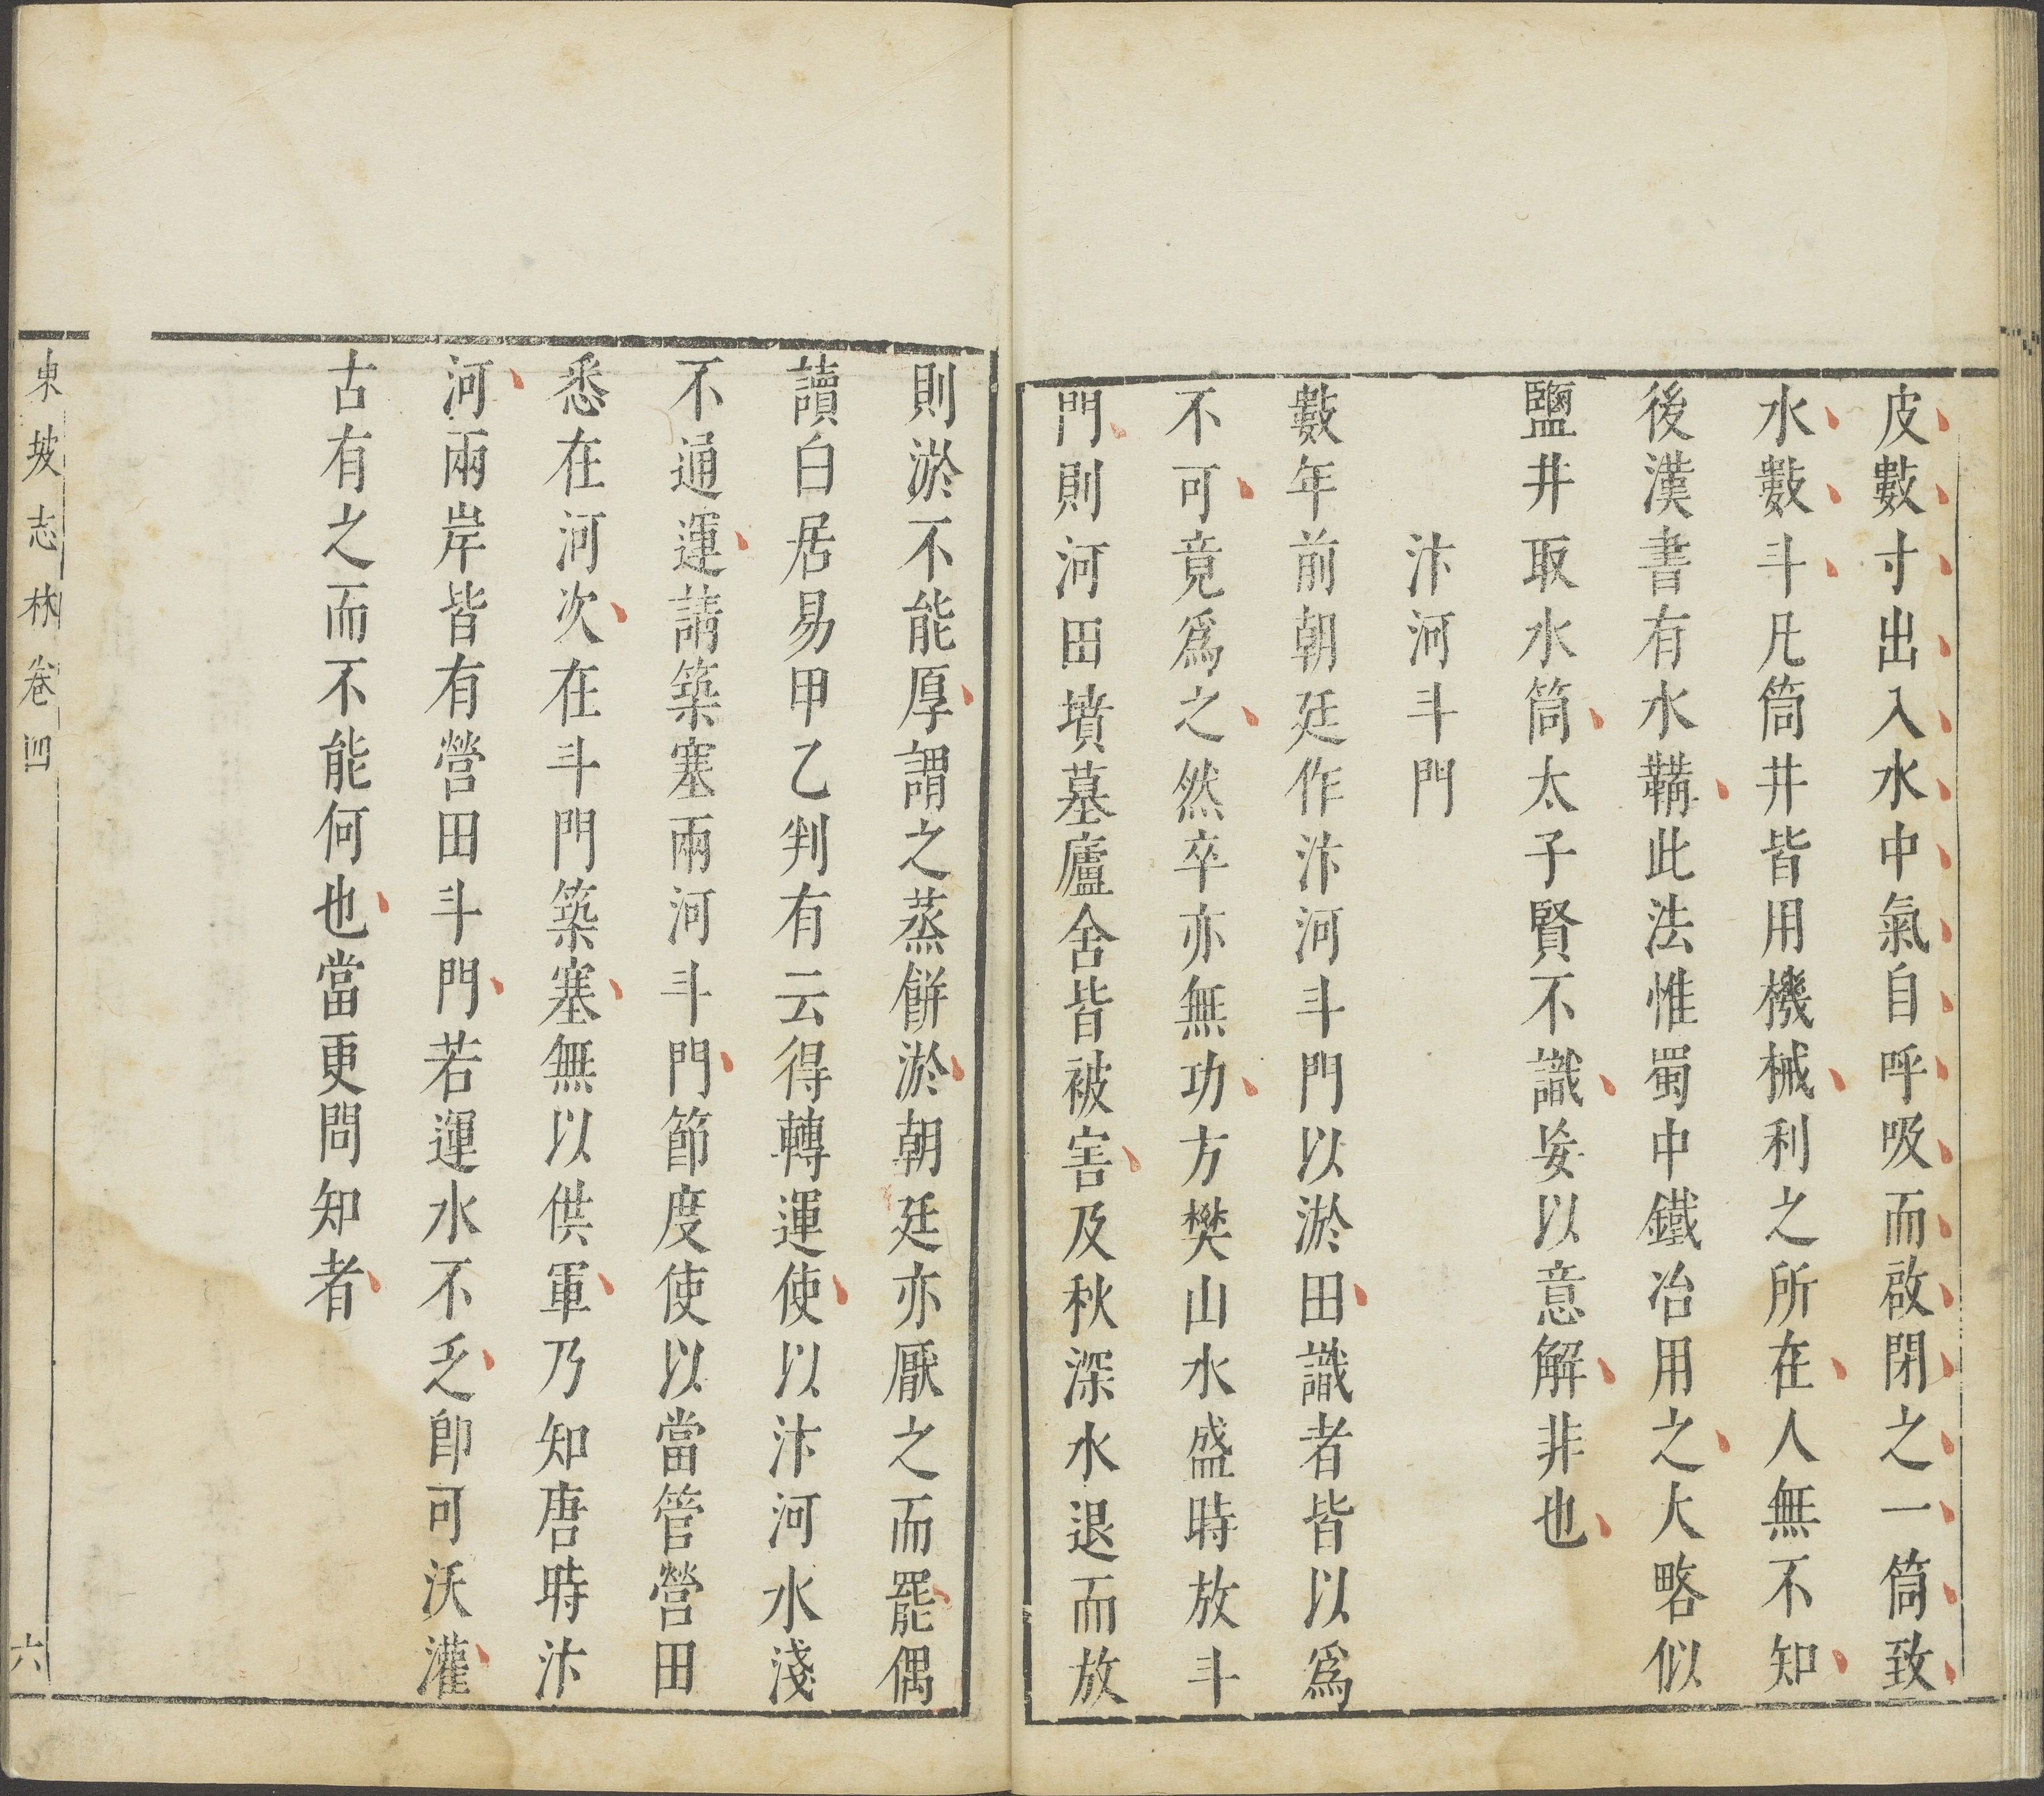 皮數寸出入水中氣自呼吸而啟閉之一筒致
水數斗凡筒井皆用機械利之所在人無不知
後漢書有水鞲此法惟蜀中鐵冶用之大略似
鹽井取水筒太子賢不識妄以意解非也
汴河斗門
數年前朝廷作汴河斗門以淤田識者皆以爲
不可竟爲之然卒亦無功方樊山水盛時放斗
門則河田墳墓廬舍皆被害及秋深水退而放
則淤不能厚謂之蒸餅淤朝廷亦厭之而罷偶
讀白居易甲乙判有云得轉運使以汴河水淺
不通運請築塞兩河斗門節度使以當管營田
悉在河次在斗門築塞無以供軍乃知唐時汴
河兩岸皆有營田斗門若運水不乏卽可沃灌
古有之而不能何也當更問知者
東坡志林卷四
六